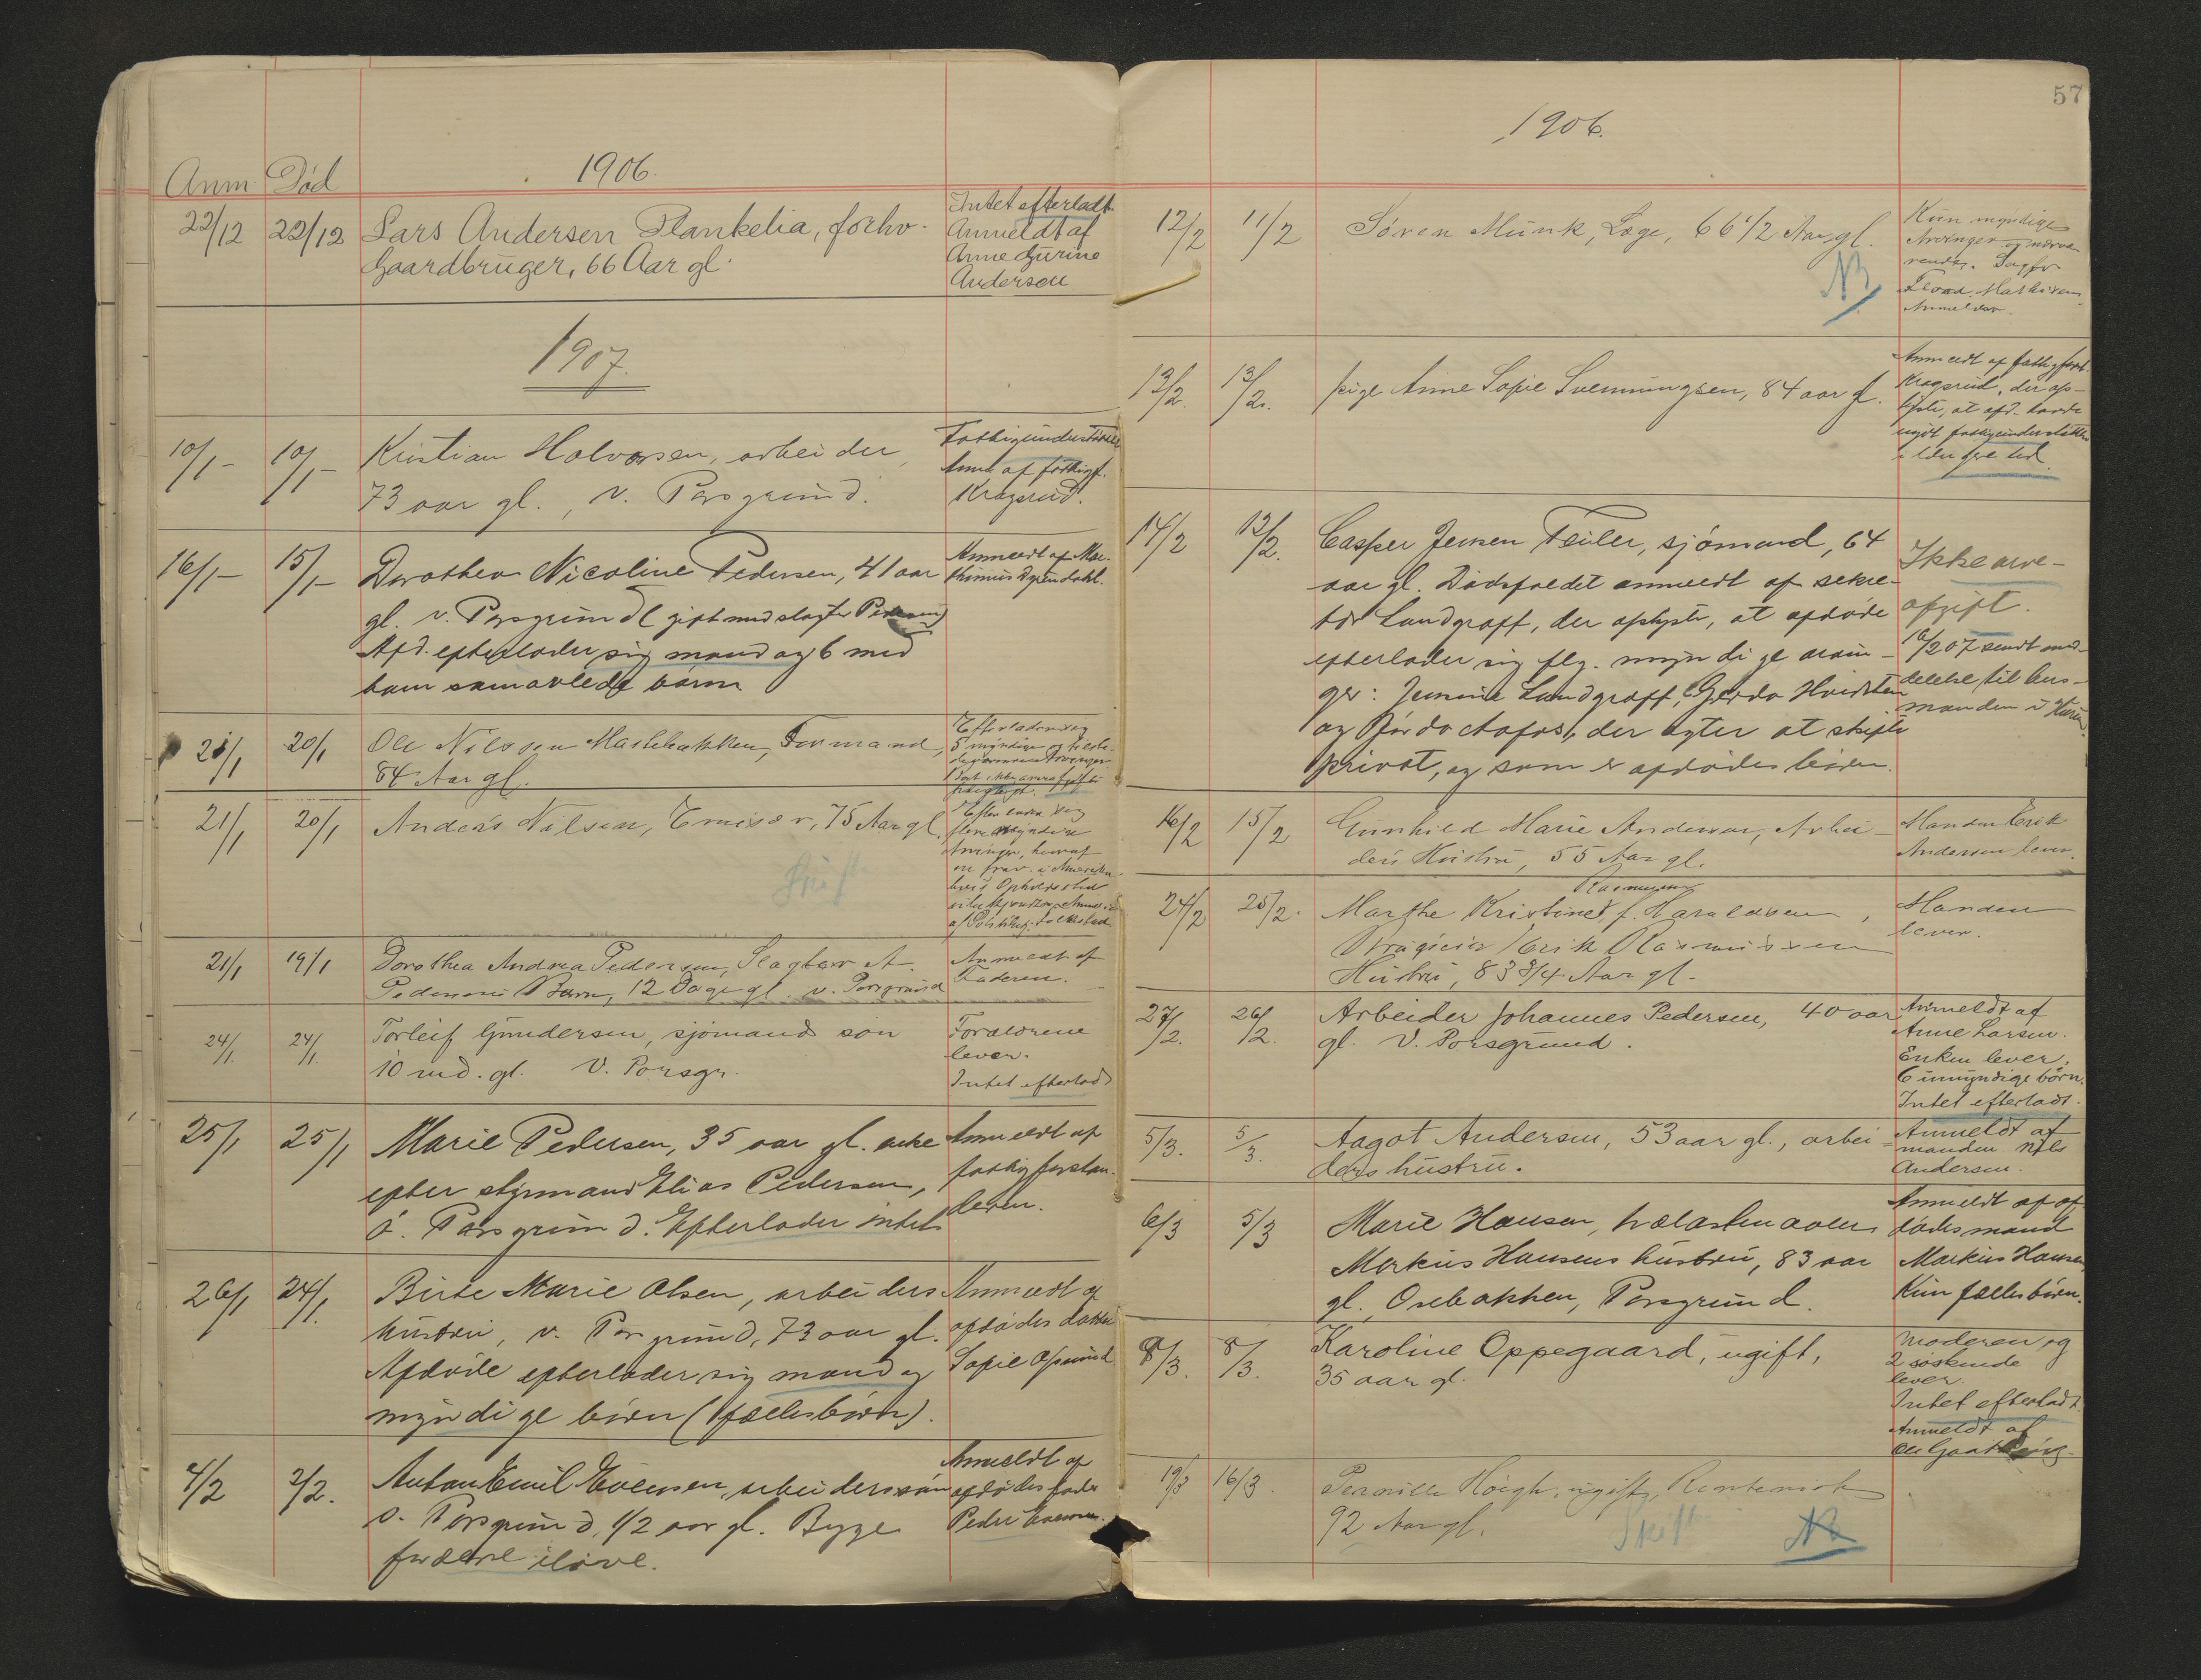 Anm. Død 1906.
22/12 22/12 Lars Andersen Plankelia, forhv.
Gaardbruger, 66 Aar gl.
Intet efterladt.
Anmeldt af
Anne Gurine
Andersen
1907.
10/1 10/1 Kristian Halvorsen, arbeider,
73 aar gl., v. Porsgrund.
Fattigunderstøttet
Anm. af fattigf.
Kragsrud.
16/1 15/1 Dorothea Nicoline Pedersen, 41 aar
gl. v. Porsgrund (gift med slagter Pedersen)
Afd. efterlader sig mand og 6 med
ham samavlede børn
Anmeldt af Mar-
thinius Dgrundahl.
21/1 20/1 Ole Nilssen Mastebakken, Formand,
84 Aar gl.
Efterlader sig
5 myndige og
21/1 20/1 Anders Nilsen, Emisær, 75 Aar gl.
Skift
Efterlader sig
flere myndige
Arvinger, hvoraf
en frav. i Amerika
hvis Opholdssted
21/1 19/1 Dorothea Andrea Pedersen, Slagter A.
Pedersens Barn, 12 Dage gl. v. Porsgrund
Anmeldt af
Faderen.
24/1 24/1 Torleif Gundersen, sjømands søn
10 md. gl. V. Porsgr.
Forældrene
lever.
Intet efterladt
25/1 25/1 Marie Pedersen, 35 aar gl. enke
efter styrmand Elias Pedersen,
ø. Porsgrund. Efterlader intet
Anmeldt af
fattigforstan-
deren.
26/1 24/1 Birte Marie Olsen, arbeiders
hustru, v. Porsgrund, 73 aar gl.
Afdøde efterlader sig mand og
myndige børn (fællesbørn).
Anmeldt af
afdødes datter
Sofie
4/2 2/2. Anton Emil Evensen, arbeiderssøn
v. Porsgrund, 1/2 aar gl. Begge
forældre ilive.
Anmeldt af
afdødes fader
Peder Evensen.
57
1906.
12/2 11/2 Søren Munk, Læge, 66 1/2 Aar gl.
NB
Kun myndige
Arvinger og nærvæ-
rende. Sagfør
Flood Mathisen
Anmelder.
13/2. 13/2. pige Anne Sofie Svenningsen, 84 aar gl.
Anmeldt af fattigforst.
Kragsrud, der op-
lyste, at afd. havde
nydt fattigunderstøttelse
i længere tid.
14/2 13/2. Casper Jensen Feiler, sjømand, 64
aar gl. Dødsfaldet anmeldt af sekre-
tær Landgraff, der oplyste, at afdøde
efterlader sig flg. myndige arvin-
ger: Jensine Landgraff, Gerda Hvidsten
og der agter at skifte
privat, og som er afdødes børn.
Ikke arve-
afgift.
16/2 07 sendt med-
delelse til lens-
manden i
16/2 15/2 Gunhild Marie Andersen, Arbei-
ders Hustru, 55 Aar gl.
Manden Erik
Andersen lever.
24/2 23/2. Marthe Kristine Rasmussen f. Haraldsen,
Brugseier Erik Rasmussens
Hustru, 83 3/4 Aar gl.
Manden
lever.
27/2. 26/2. Arbeider Johannes Pedersen, 40 aar
gl. V. Porsgrund.
Anmeldt af
Anne Larsen.
Enken lever.
6 umyndige børn.
Intet efterladt.
5/3. 5/3. Aagot Andersen, 53 aar gl., arbei-
ders hustru.
Anmeldt af
manden Nils
Andersen.
6/3 5/3 Marie Hansen,
Markus Hansens hustru, 83 aar
gl. Osebakken, Porsgrund.
Anmeldt af af-
dødes mand
Markus Hansen
Kun fællesbørn.
8/3. 8/3. Karoline Oppegaard, ugift,
35 aar gl.
Moderen og
2 søskende
lever.
Intet efterladt
Anmeldt af
19/3 16/3. Pernille Høigh, ugift, Rentenist
92 Aar gl.
Skift NB